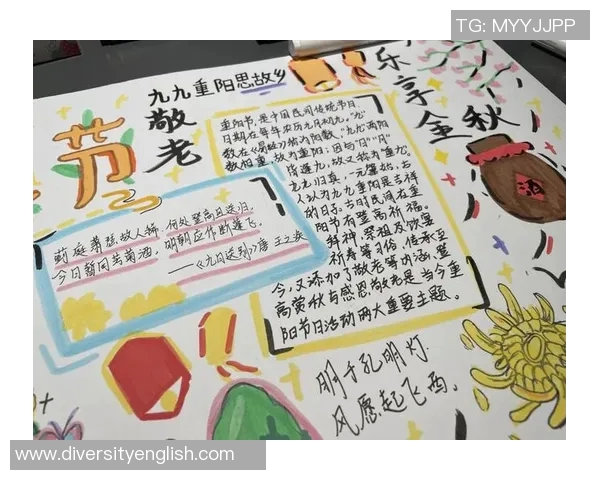 TG: MYYJJPP
九九重阳思故乡
敬老
节
乐享金秋
酒
重阳节,是中国民间传统节日,
日期在每年农历九月初九。"九"
数在《易经》中为阳数,"九九"两阳
数相重,故为重阳;因与"日""月"
皆逢九,故又称为"重九"。
九九归真,一元肇始,古
人认为九九重阳是吉祥
的日子,古时民间在重
阳节有登高祈福、
拜神、祭祖及饮宴
祈寿等习俗,传承至
今,又添加了敬老等内涵,登
高赏秋与感恩敬老是当今重
阳节日活动两大重要主题。
蓟庭萧瑟故人稀,何处登高且送归。
今日暂同芳菊酒,明朝应作断蓬飞。
——《九日送别》唐 王之涣
明于孔明灯.
风愿起飞西,
www.diversityenglish.com